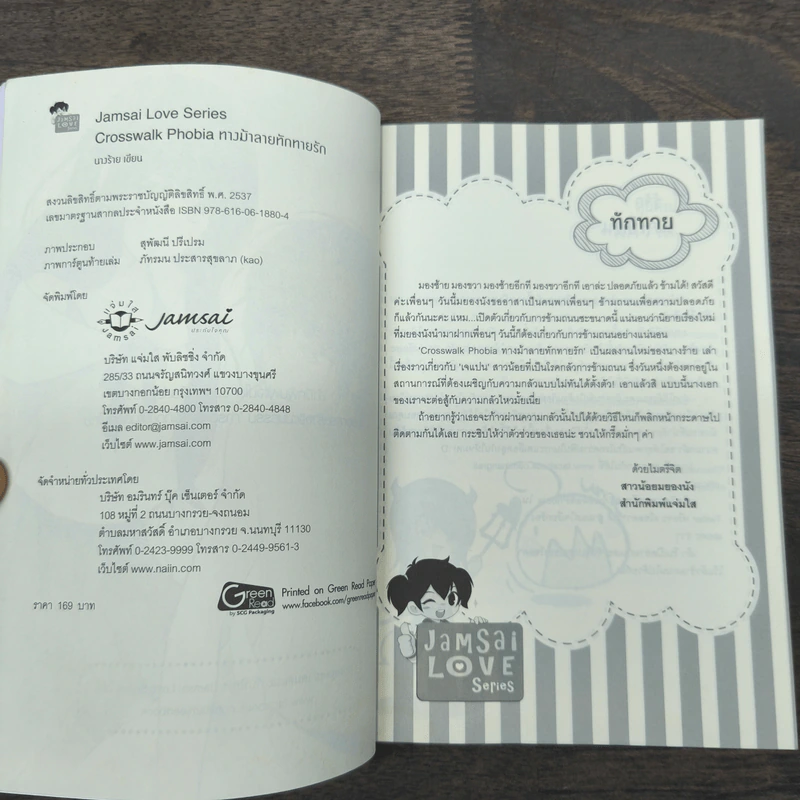 JAMSAI
LOVE
Jamsai Love Series
Crosswalk Phobia ทางม้าลายทักทายรัก
นางร้าย เขียน
สงวนลิขสิทธิ์ตามพระราชบัญญัติลิขสิทธิ์ พ.ศ. 2537
เลขมาตรฐานสากลประจำหนังสือ ISBN 978-616-06-1880-4
ภาพประกอบ สุพัฒนี ปรีเปรม
ภาพการ์ตูนท้ายเล่ม ภัทรมน ประสารสุขลาภ (kao)
จัดพิมพ์โดย
แจ่มใส
Jamsai
Jamsai
ประทับใจคุณ
บริษัท แจ่มใส พับลิชชิ่ง จำกัด
285/33 ถนนจรัญสนิทวงศ์ แขวงบางขุนศรี
เขตบางกอกน้อย กรุงเทพฯ 10700
โทรศัพท์ 0-2840-4800 โทรสาร 0-2840-4848
อีเมล editor@jamsai.com
เว็บไซต์ www.jamsai.com
จัดจำหน่ายทั่วประเทศโดย
บริษัท อมรินทร์ บุ๊ค เซ็นเตอร์ จำกัด
108 หมู่ที่ 2 ถนนบางกรวย-จงถนอม
ตำบลมหาสวัสดิ์ อำเภอบางกรวย จ.นนทบุรี 11130
โทรศัพท์ 0-2423-9999 โทรสาร 0-2449-9561-3
เว็บไซต์ www.naiin.com
ราคา 169 บาท
Green
Read
by SCG Packaging
Printed on Green Read Paper
www.facebook.com/greenreadpaper
ทักทาย
มองซ้าย มองขวา มองซ้ายอีกที มองขวาอีกที เอาล่ะ ปลอดภัยแล้ว ข้ามได้! สวัสดี
ค่ะเพื่อนๆ วันนี้มยองนังขออาสาเป็นคนพาเพื่อนๆ ข้ามถนนเพื่อความปลอดภัย
ก็แล้วกันนะคะ แหม...เปิดตัวเกี่ยวกับการข้ามถนนซะขนาดนี้ แน่นอนว่านิยายเรื่องใหม่
ที่มยองนังนำมาฝากเพื่อนๆ วันนี้ก็ต้องเกี่ยวกับการข้ามถนนอย่างแน่นอน
'Crosswalk Phobia ทางม้าลายทักทายรัก' เป็นผลงานใหม่ของนางร้าย เล่า
เรื่องราวเกี่ยวกับ 'เจแปน' สาวน้อยที่เป็นโรคกลัวการข้ามถนน ซึ่งวันหนึ่งต้องตกอยู่ใน
สถานการณ์ที่ต้องเผชิญกับความกลัวแบบไม่ทันได้ตั้งตัว! เอาแล้วสิ แบบนี้นางเอก
ของเราจะต่อสู้กับความกลัวไหวมั้ยเนี่ย
ถ้าอยากรู้ว่าเธอจะก้าวผ่านความกลัวนั้นไปได้ด้วยวิธีไหนก็พลิกหน้ากระดาษไป
ติดตามกันได้เลย กระซิบให้ว่าตัวช่วยของเธอน่ะ ชวนให้กรี๊ดมักๆ ค่า
ด้วยไมตรีจิต
สาวน้อยมยองนัง
สำนักพิมพ์แจ่มใส
JAMSAI
LOVE
Series